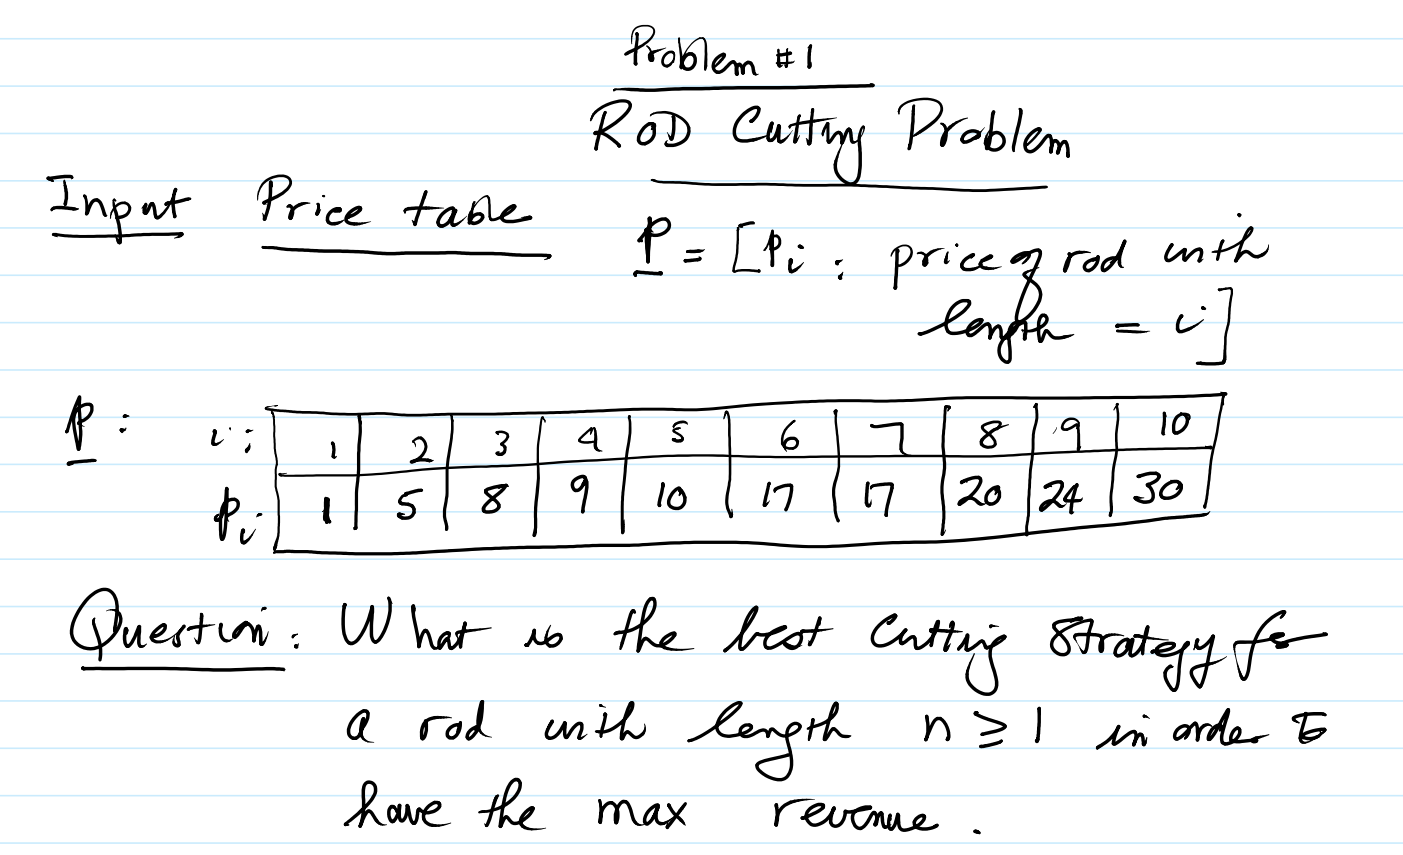 Problem #1
ROD Cutting Problem
Input Price table
P = [pi : price of rod with
length = i]
p : i: 1 2 3 4 5 6 7 8 9 10
pi: 1 5 8 9 10 17 17 20 24 30
Question: What is the best cutting strategy for
a rod with length n ≥ 1 in order to
have the max revenue.